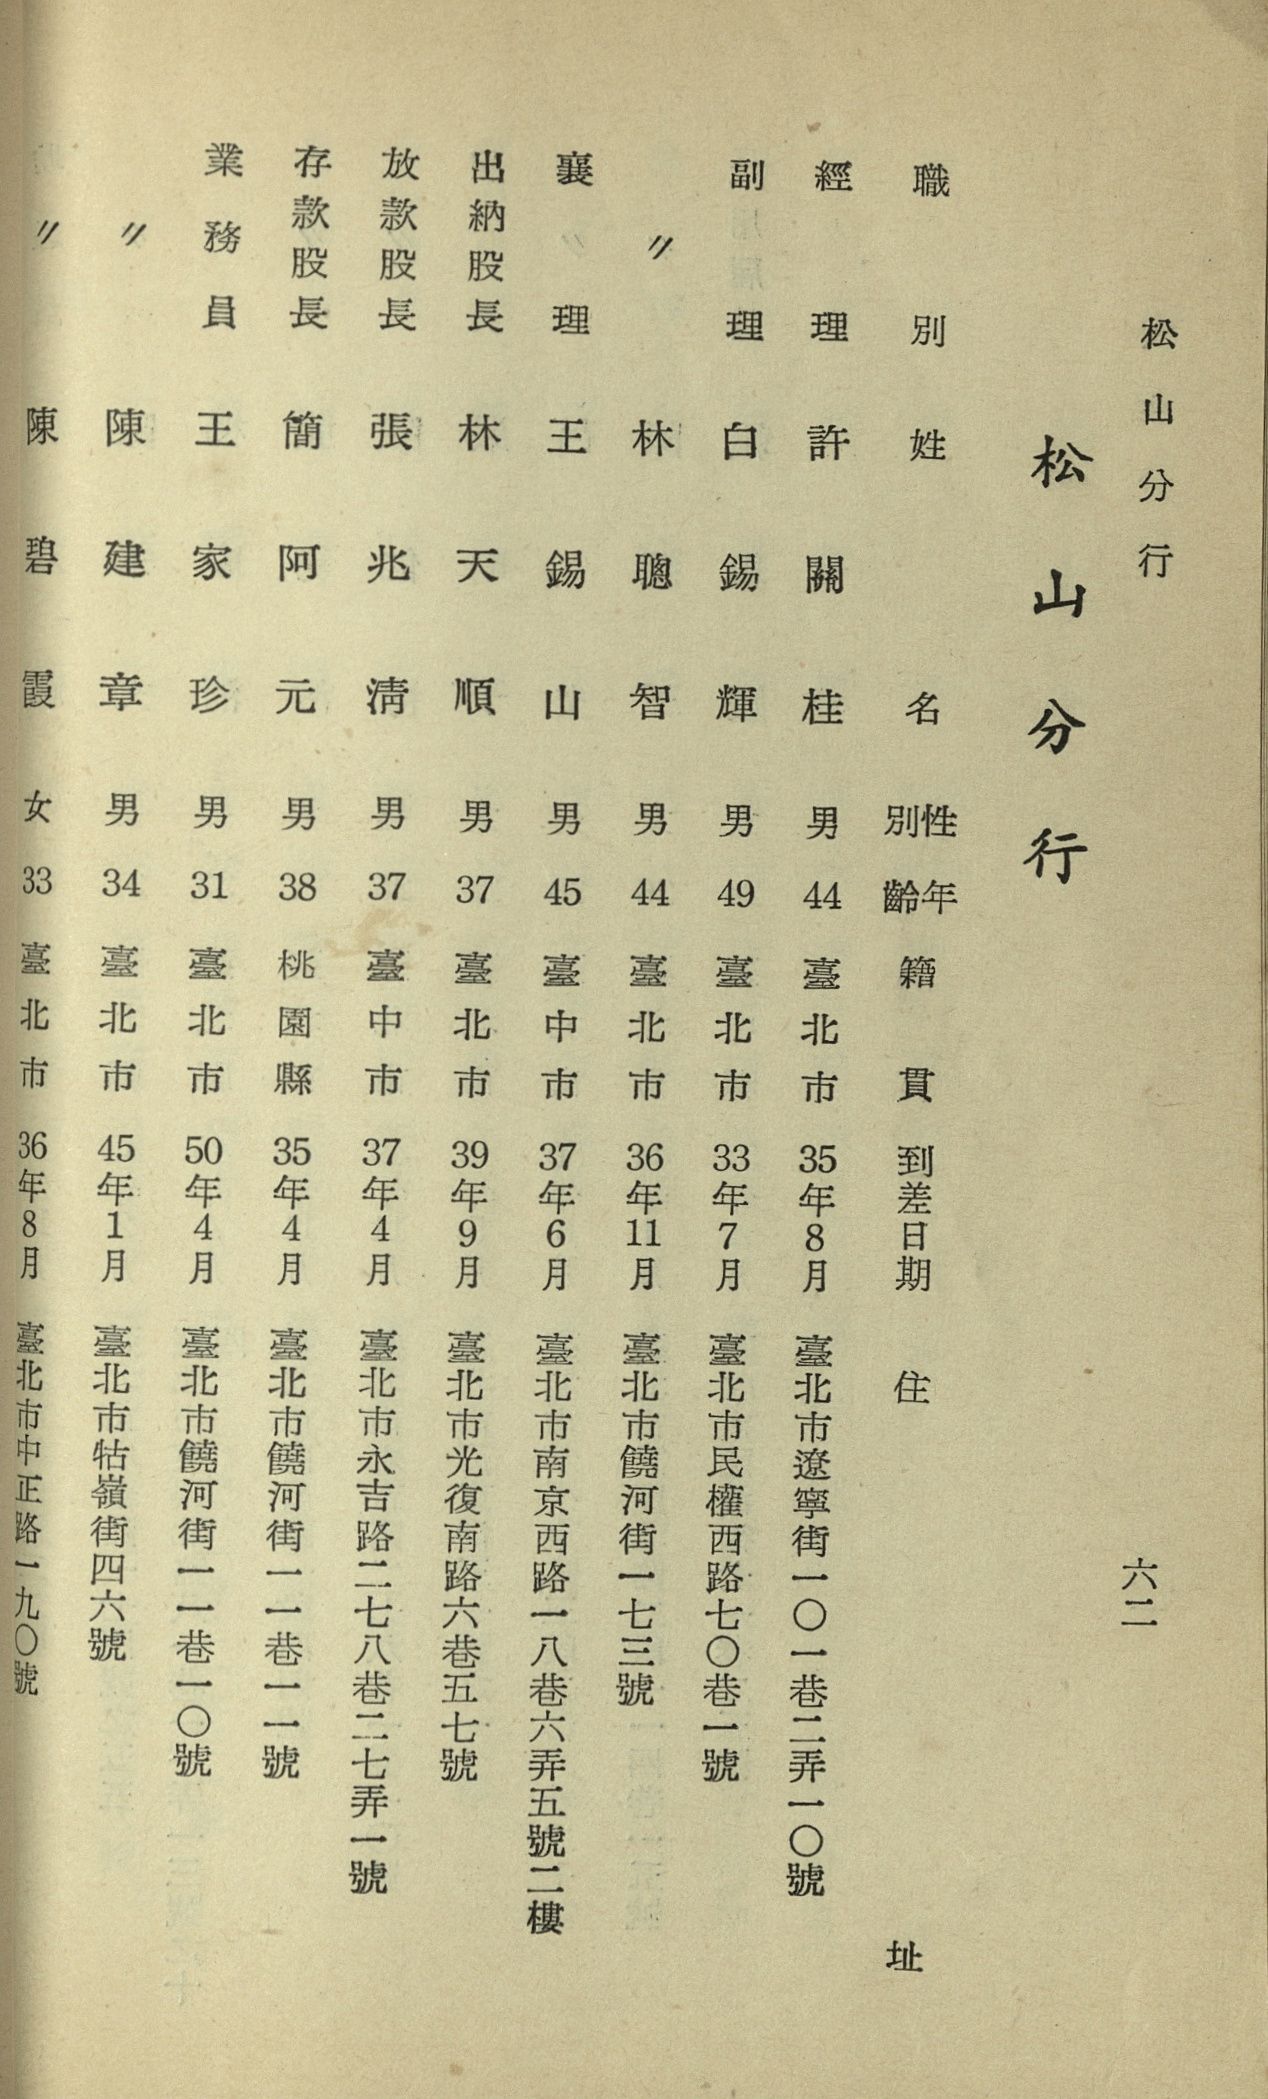 松山分行
六二
松山分行
職別 姓名 性別 年齡 籍貫 到差日期 住址
經理 許關桂 男 44 臺北市 35年8月 臺北市遼寧街一〇一巷二弄一〇號
副理 白錫輝 男 49 臺北市 33年7月 臺北市民權西路七〇巷一號
〃 林聰智 男 44 臺北市 36年11月 臺北市饒河街一七三號
襄理 王錫山 男 45 臺中市 37年6月 臺北市南京西路一八巷六弄五號二樓
出納股長 林天順 男 37 臺北市 39年9月 臺北市光復南路六巷五七號
放款股長 張兆清 男 37 臺中市 37年4月 臺北市永吉路二七八巷二七弄一號
存款股長 簡阿元 男 38 桃園縣 35年4月 臺北市饒河街一一巷一一號
業務員 王家珍 男 31 臺北市 50年4月 臺北市饒河街一一巷一〇號
〃 陳建章 男 34 臺北市 45年1月 臺北市牯嶺街四六號
〃 陳碧霞 女 33 臺北市 36年8月 臺北市中正路一九〇號